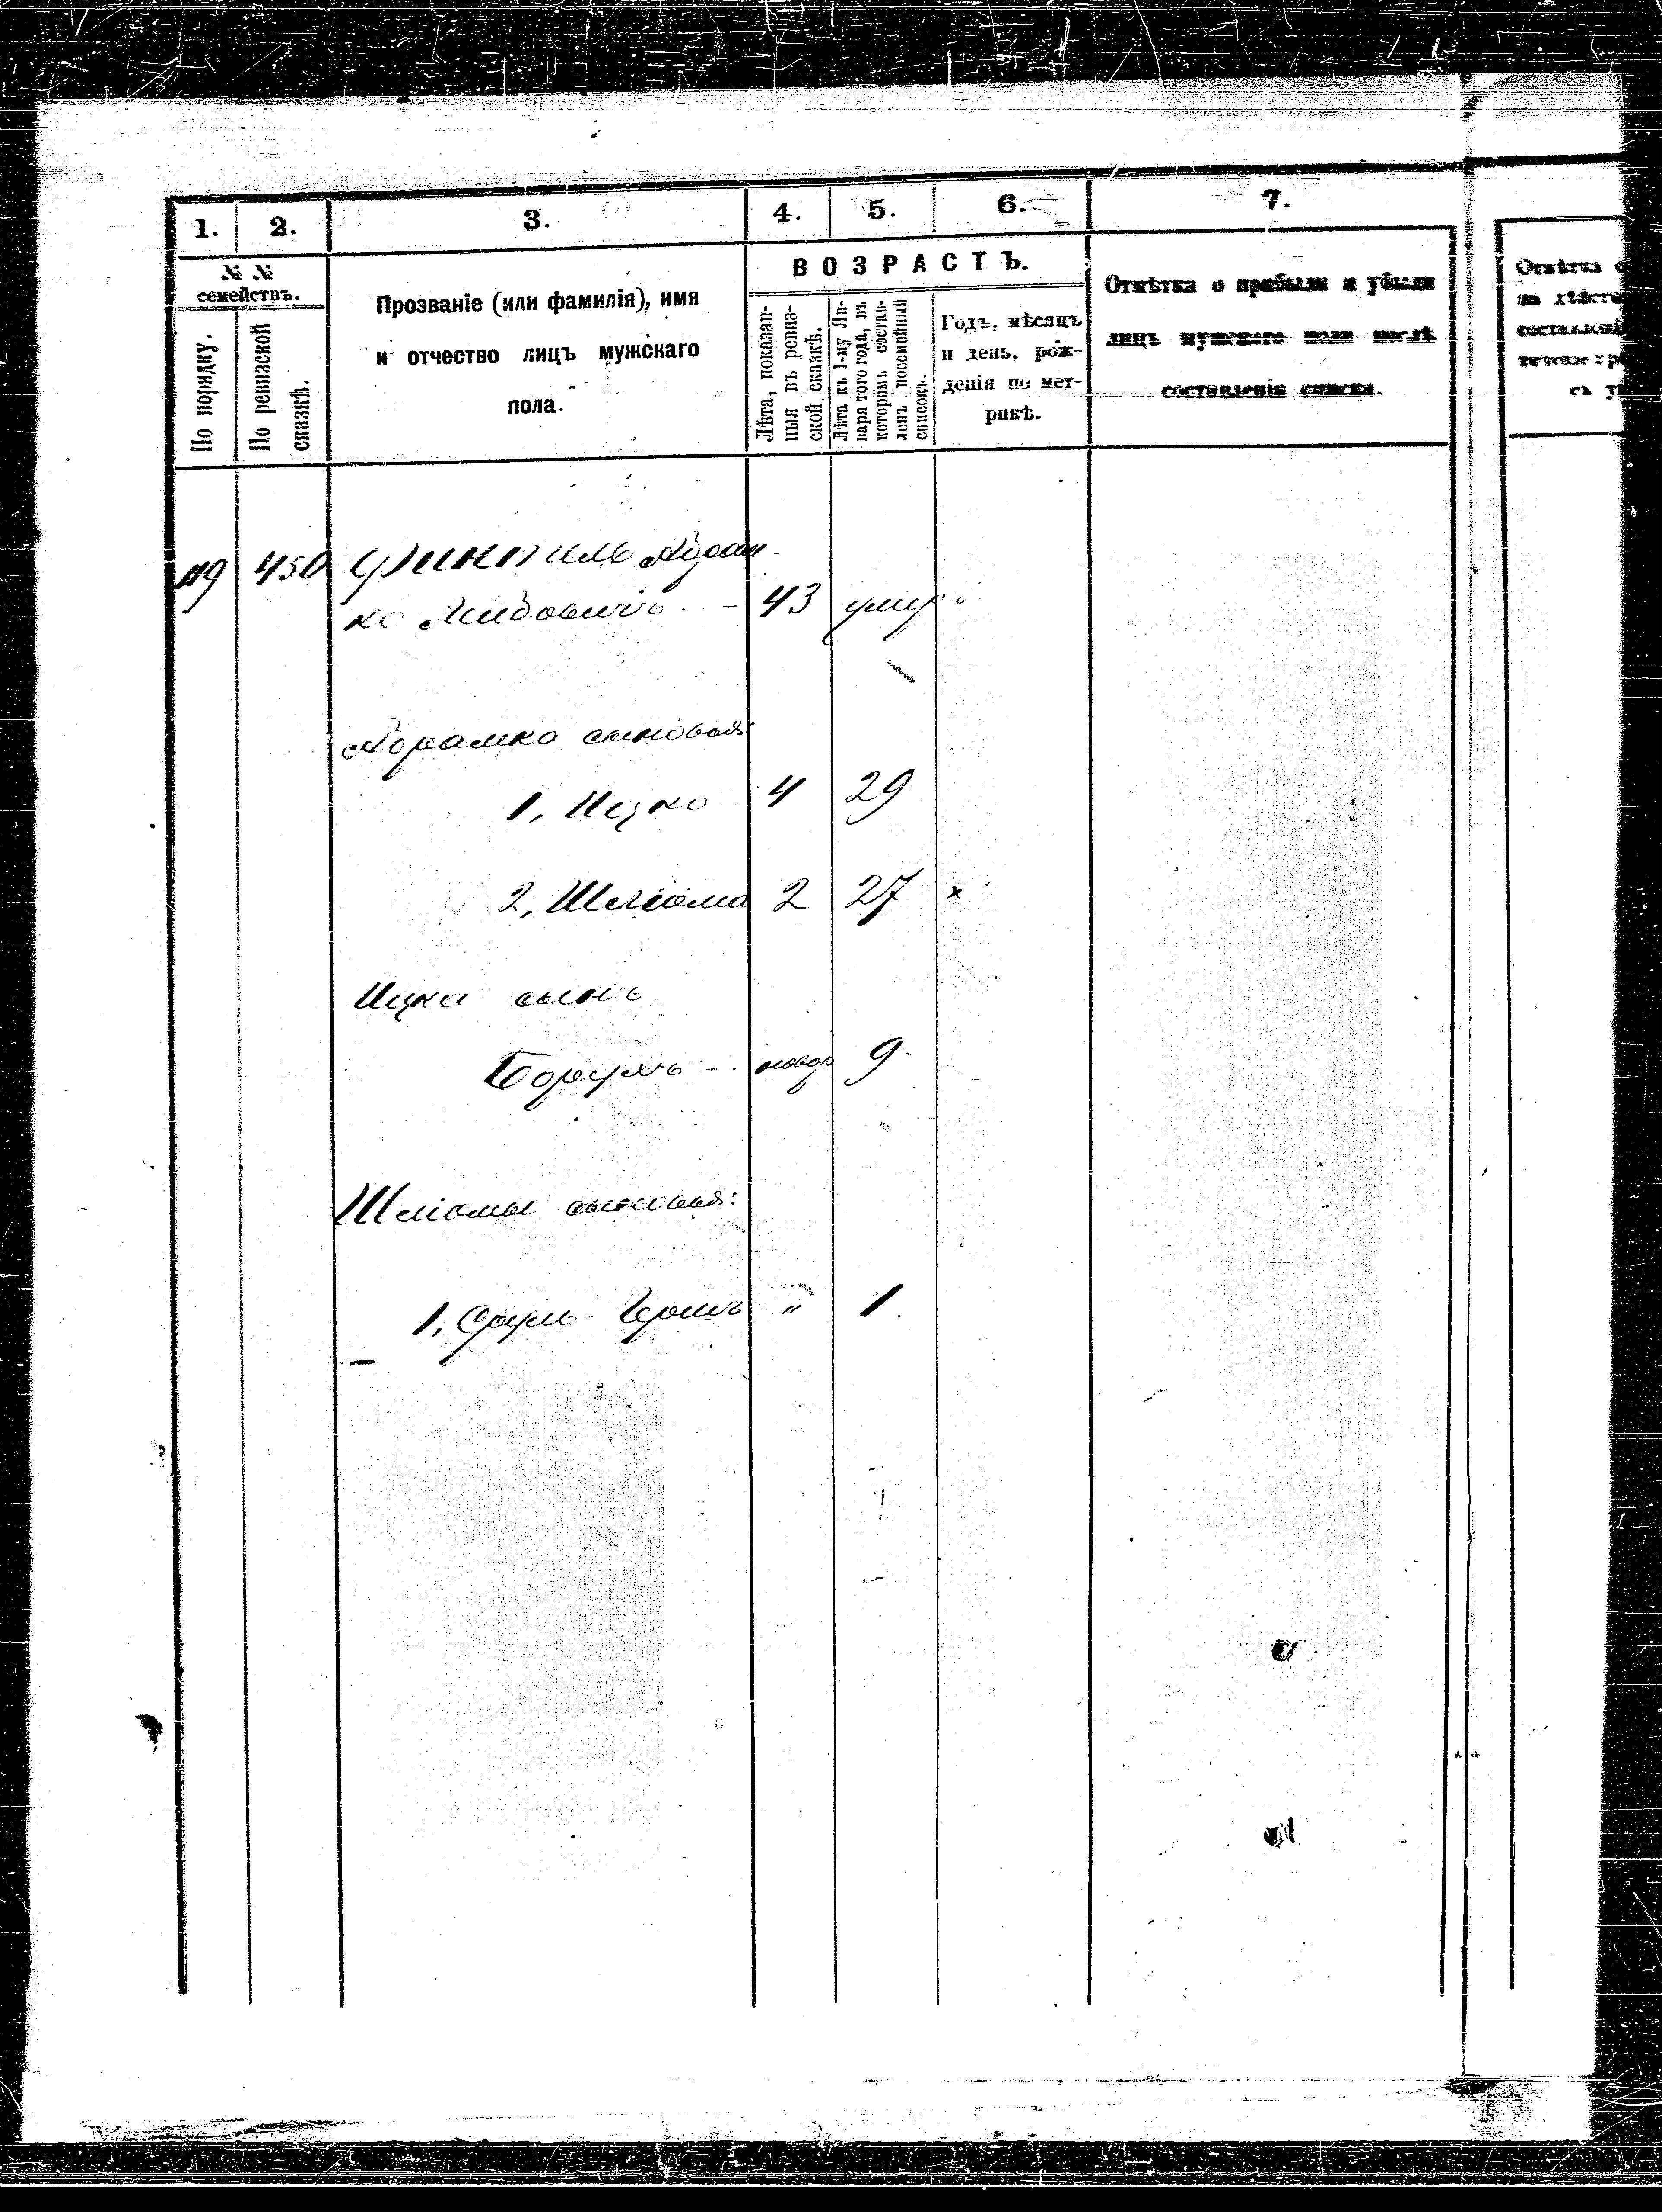 1. 2. 3. 4. 5. 6. 7.
№ №
семействъ.
По порядку.
По ревизской
сказкѣ.
Прозваніе (или фамилія), имя
и отчество лицъ мужскаго
пола.
ВОЗРАСТЪ.
Лѣта, показан-
ныя въ ревиз-
ской сказкѣ.
Лѣта къ 1-му Ян-
варя того года, въ
которомъ состав-
ленъ посемѣйный
списокъ.
Годъ, мѣсяцъ
и день, рож-
денія по мет-
рикѣ.
Отмѣтка о прибыли и убыли
лицъ мужскаго пола послѣ
составленія списка.
Отмѣтка о
119 450 Финкиль Абрам-
ко 43 умер
Абрамко сыновья
1, Ицко 4 29
2, Шліома 2 27 ×
Ицки сынъ
Борухъ - новор 9
Шліомы сыновья:
1, Сруль " 1.